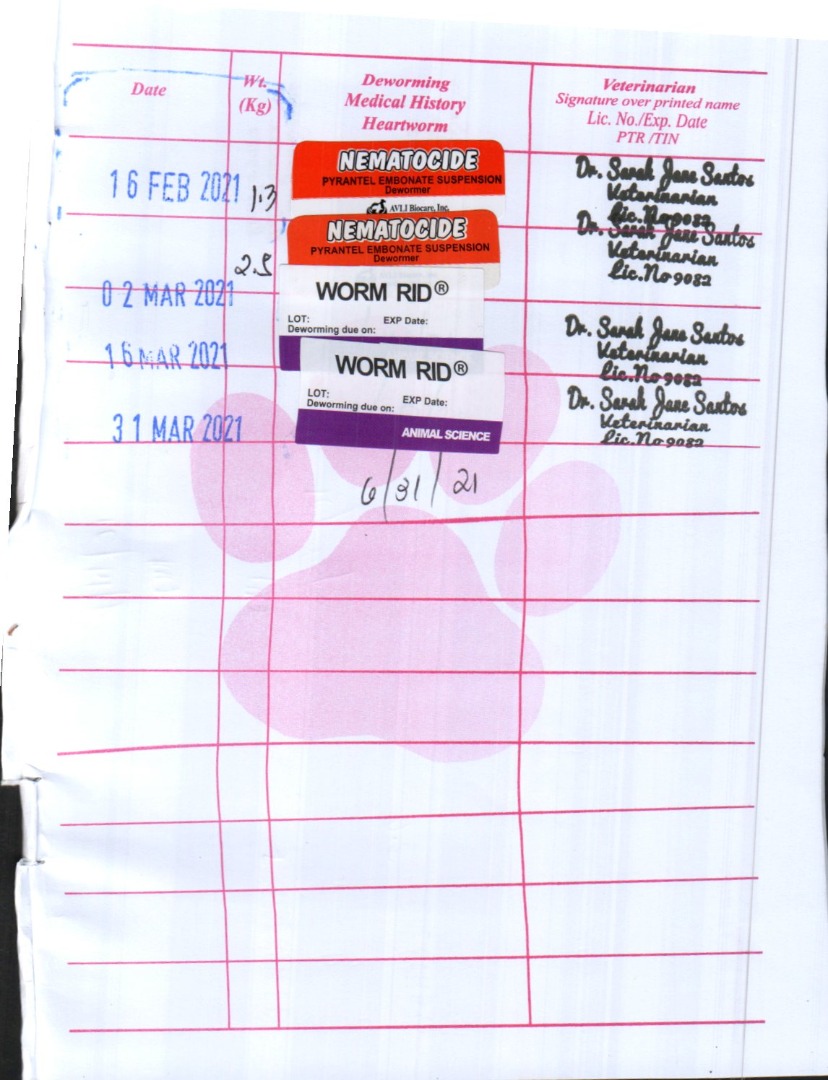 Date
Wt.
(Kg)
Deworming
Medical History
Heartworm
Veterinarian
Signature over printed name
Lic. No./Exp. Date
PTR /TIN
16 FEB 2021
1.3
NEMATOCIDE
PYRANTEL EMBONATE SUSPENSION
Dewormer
AVLI Biocare, Inc.
Dr. Sarah Jane Santos
Veterinarian
Lic.No9082
02 MAR 2021
2.5
NEMATOCIDE
PYRANTEL EMBONATE SUSPENSION
Dewormer
Dr. Sarah Jane Santos
Veterinarian
Lic.No9082
16 MAR 2021
WORM RID®
LOT: EXP Date:
Deworming due on:
Dr. Sarah Jane Santos
Veterinarian
Lic.No9082
31 MAR 2021
WORM RID®
LOT: EXP Date:
Deworming due on:
ANIMAL SCIENCE
Dr. Sarah Jane Santos
Veterinarian
Lic.No9082
6/31/21